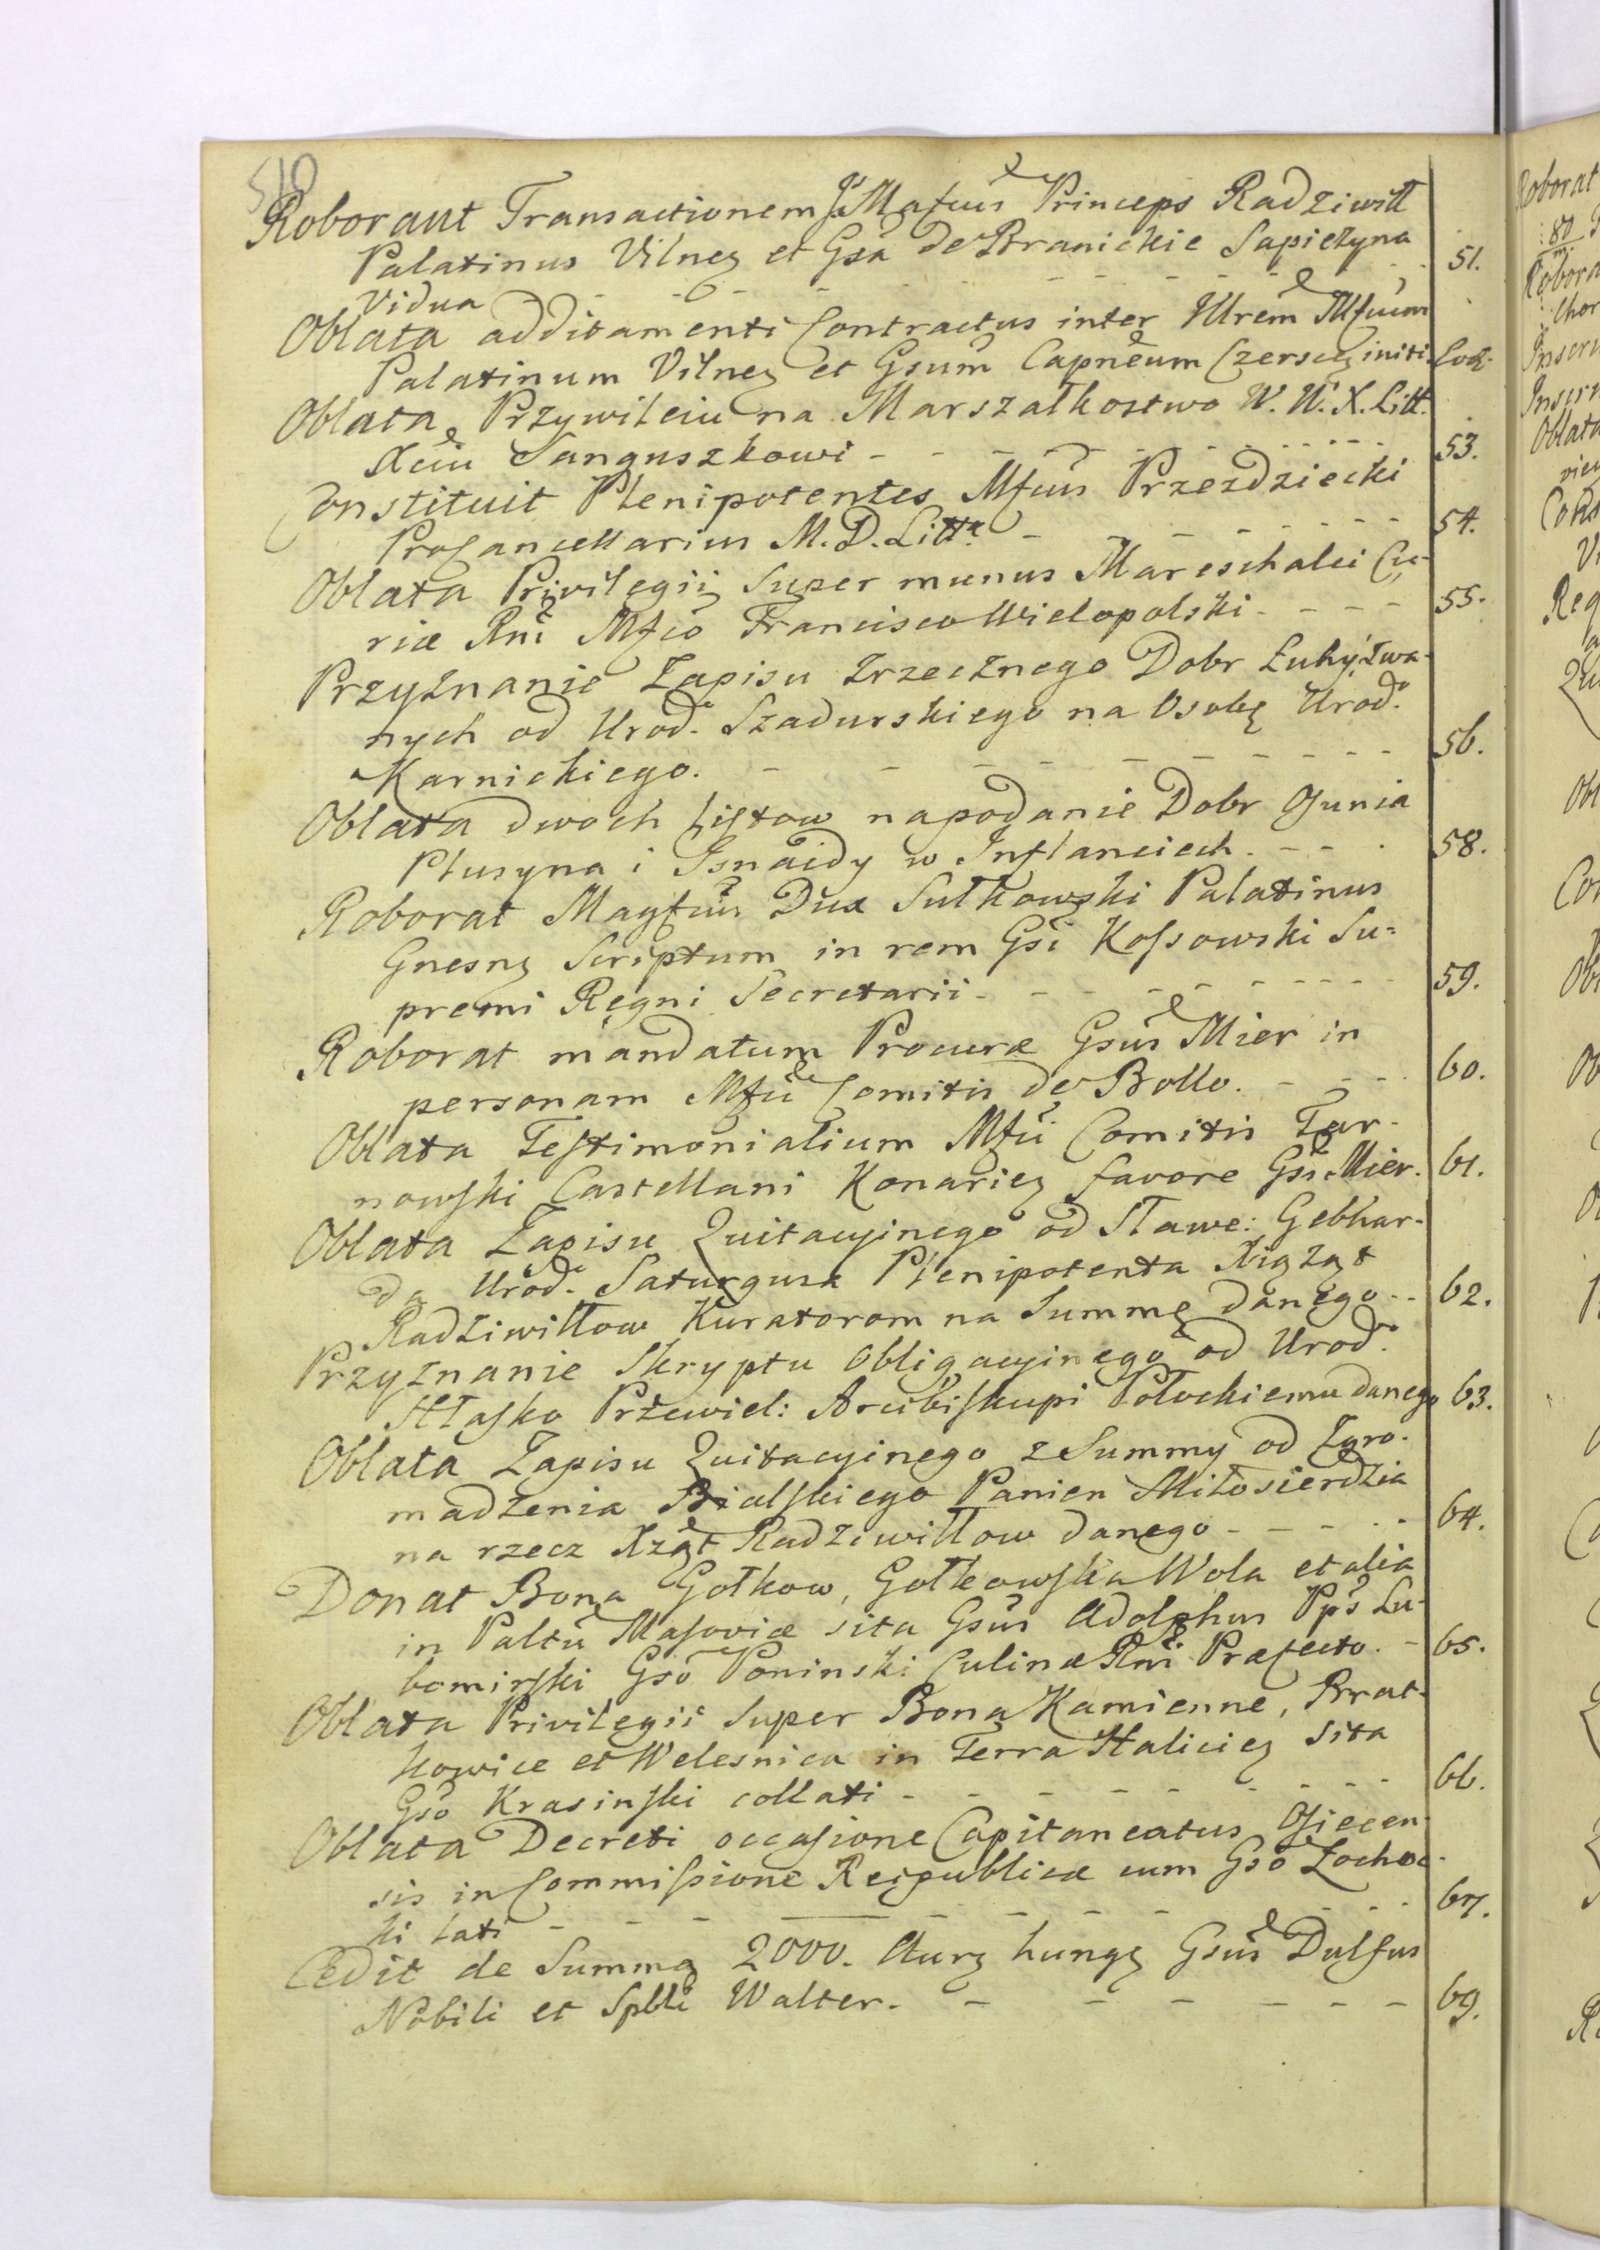 Roborant Transactionem Mafcus Princeps Radziwiłł
Palatinus Vilneņ et Gsa de Branickie Sapieżyna 51.
Vidua
Oblata additamenti Contractus inter Illrem Mfcum
Palatinum Vilneņ et Gsum Capneum Czerscenņ initi. Eod.
Oblata Przywileiu na Marszałkostwo W. W. X. Litt.
Xciu Sanguszkowi - - - 53.
Constituit Plenipotentes Mfcus Przezdziecki
ProCancellarius M. D. Litt. - - - 54.
Oblata Privilegii super munus Mareschalci Cu-
riæ Rni Mfco Francisco Wielopolski - - - 55.
Przyznanie Zapisu Zrzecznego Dobr Łukiźwa-
nych od Urod. Szadurskiego na Osobę Urod.
Karnickiego. - - - 56.
Oblata dwoch Listow na podanie Dobr Osunia
Plusyna i Isnaidy w Inflanciech. - - - 58.
Roborat Magfcus Dux Sułkowski Palatinus
Gnesnę Scriptum in rem Gsi Kossowski Su=
premi Regni Secretarii - - - 59.
Roborat mandatum Procuræ Gsus Mier in
personam Mfci Comitis de Bollo. - - - 60.
Oblata Testimonialium Mfci Comitis Tar-
nowski Castellani Konarieņ favore Gsi Mier. 61.
Oblata Zapisu Quitacyinego od Sławe: Gebhar-
da Urod. Saturgusa Plenipotenta Xiążąt
Radziwiłłow Kuratorom na Summę danego - - 62.
Przyznanie Skryptu Obligacyinego od Urod.
Hłasko Przewiel: Arcibiskupi Połockiemu danego 63.
Oblata Zapisu Quitacyinego z Summy od Zgro-
madzenia Bialskiego Panien Miłosierdzia
na rzecz Xżąt Radziwiłłow danego - - - 64.
Donat Bona Gołkow, Gołkowska Wola et alia
in Paltu Masoviæ sita Gsus Adolphus Pps Lu-
bomirski Gso Poninski Culinæ Rni Præfecto. - 65.
Oblata Privilegii super Bona Kamienne, Brat-
kowice et Welesnica in Terra Halicieņ Sita
Gso Krasinski collati - - - 66.
Oblata Decreti occasione Capitaneatus Osiecen-
sis in Commissione Reipublicæ cum Gso Zochoc-
ki lati - - - 67.
Cedit de Summa 2000. Aurę hungę Gsus Dulfus
Nobili et Spbli Walter. - - - 69.